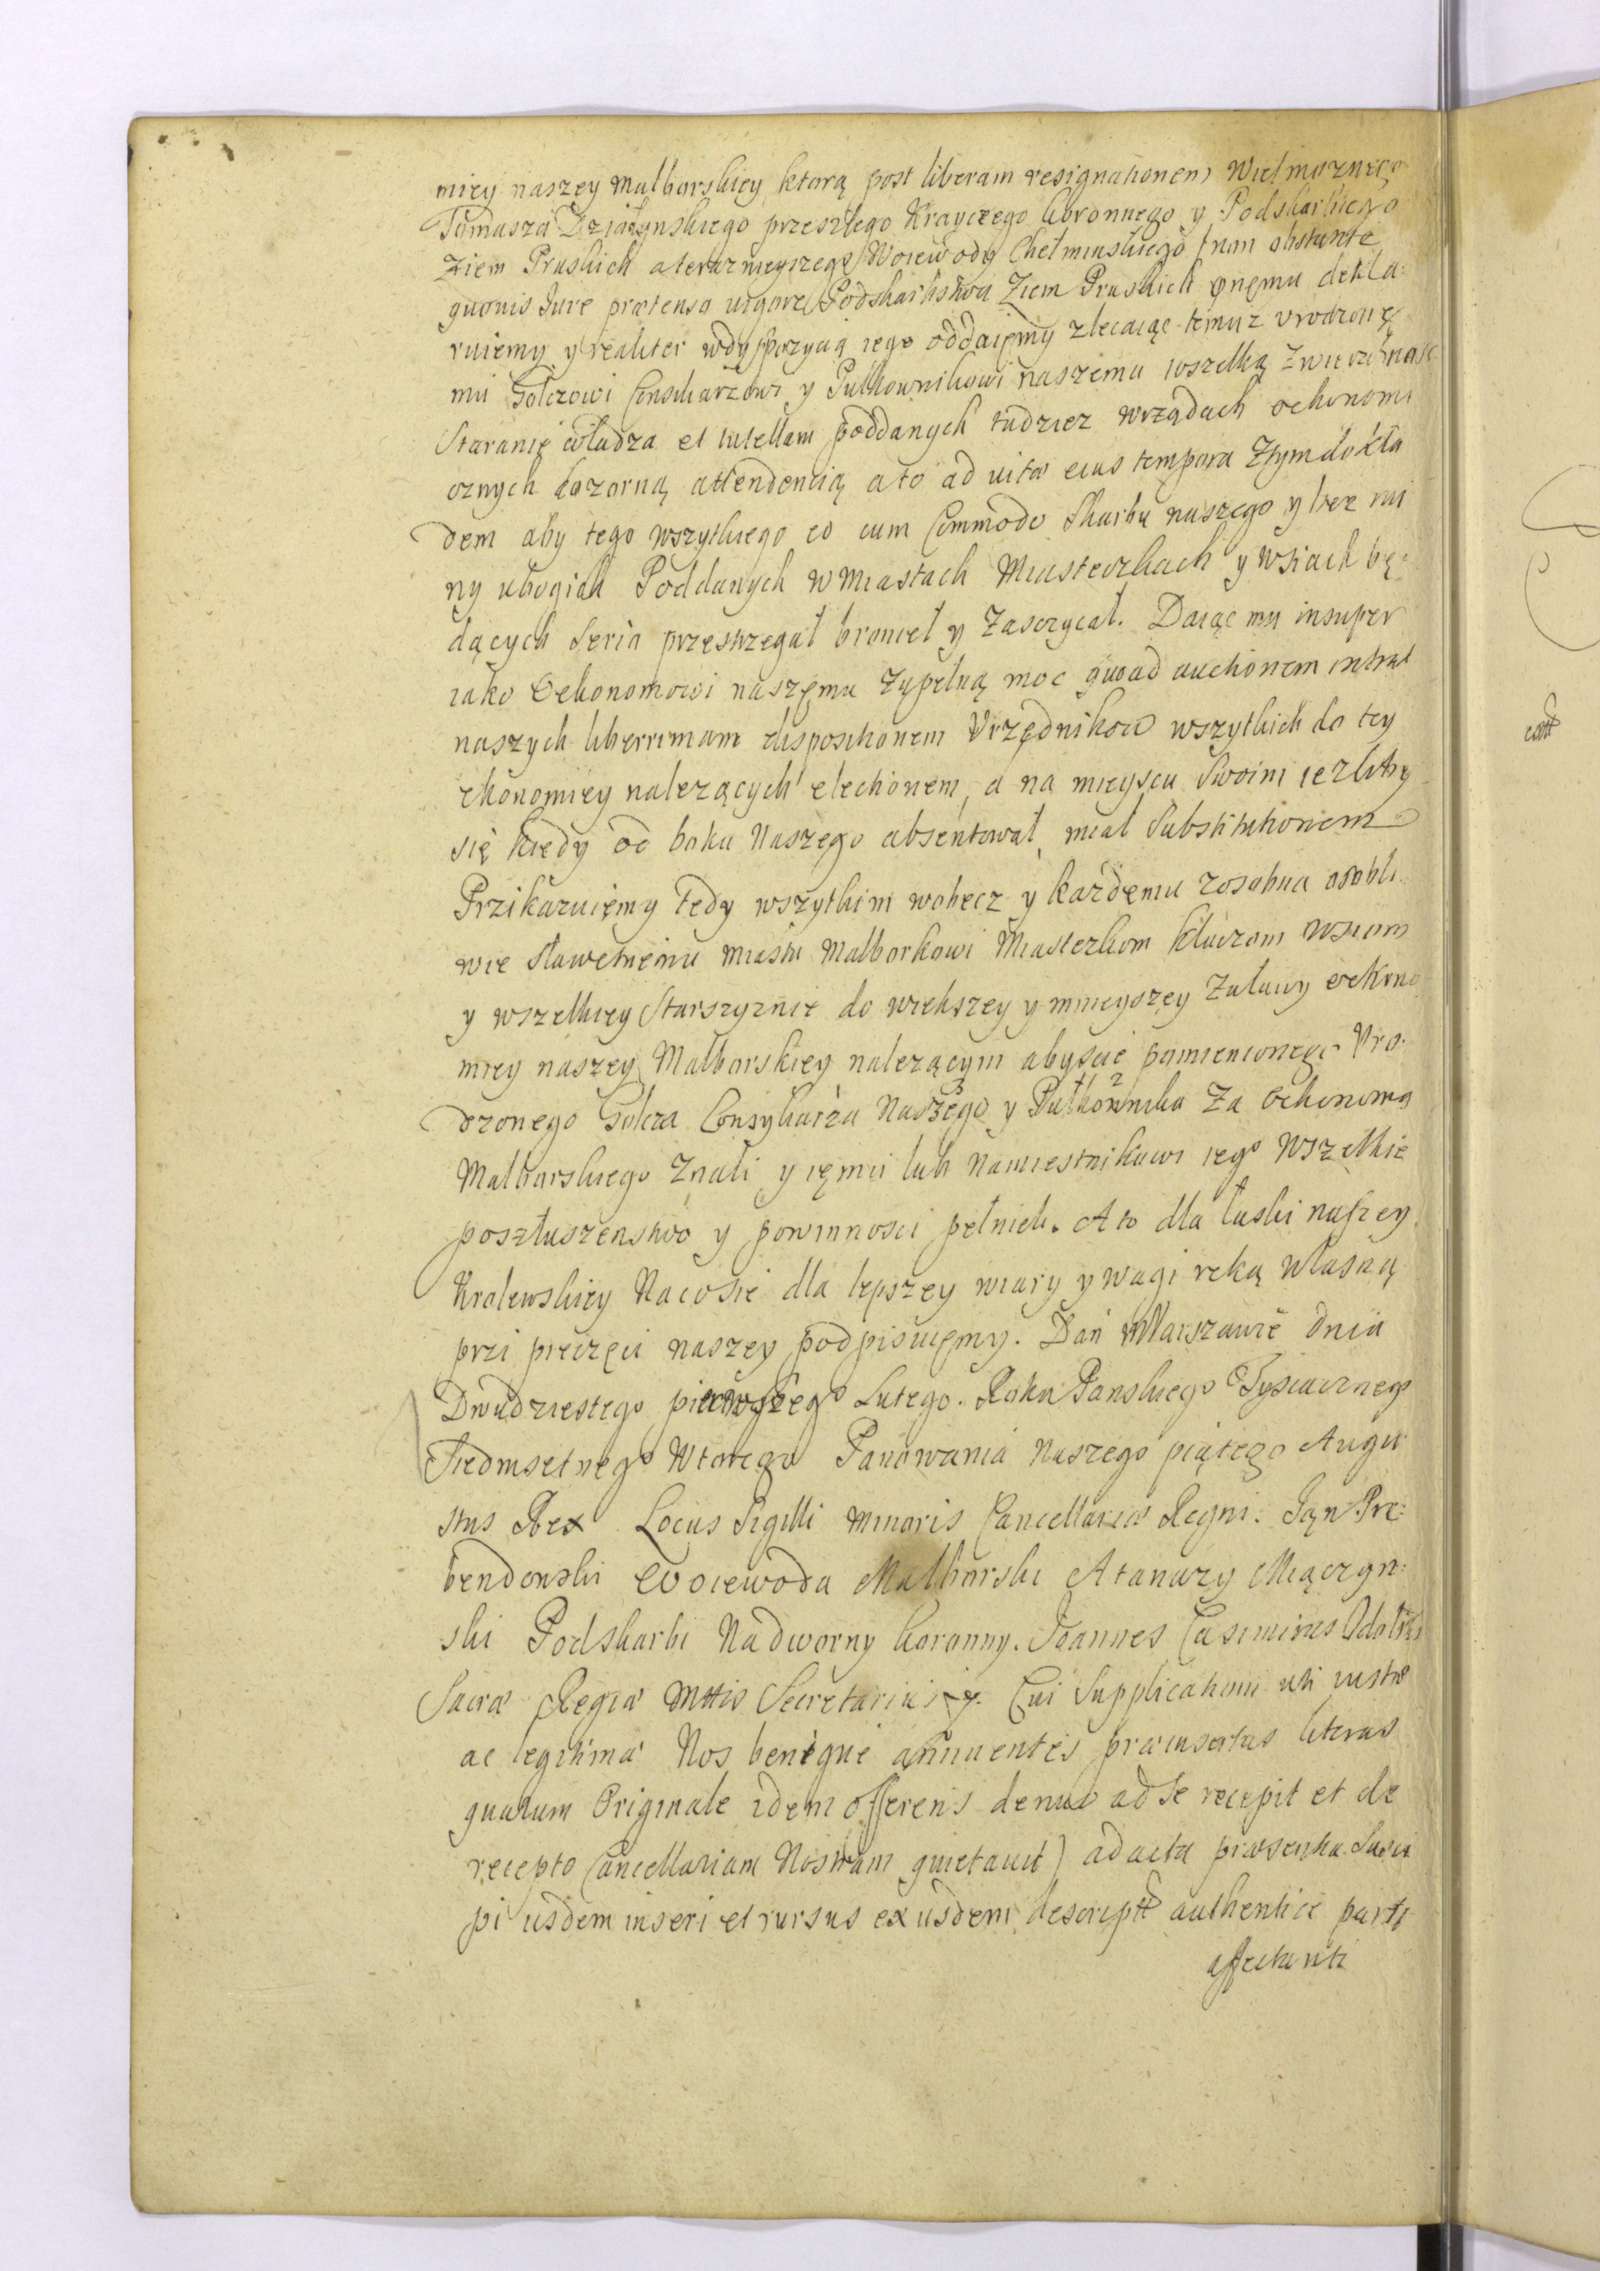 miey naszey Malborskiey ktorą post liberam resignationem Wielmoznego
Tomasza Działynskiego przeszłego Krayczego koronnego y Podskarbiego
Ziem Pruskich a teraznieyszego Woiewody Chełminskiego /non obstante
quovis Jure prætenso vigore Podskarbstwa Ziem Pruskich onemu dekla:
ruiemy y realiter w dyspozycią iego oddaiemy zlecaiąc temuz Urodzone
mu Golczowi Consiliarzowi y Pułkownikowi naszemu wszelką zwierzchnosc
Staranie władza et tutellam poddanych tudziez w rządach oekonomi
cznych dozorną attendencią a to ad vitæ eius tempora Z tym dokła
dem aby tego wszytkiego co cum Commodo Skarbu naszego y bez rui
ny ubogich Poddanych w miastach Miasteczkach y Wsiach bę:
dących Seria przestrzegał bronieł y Zasczycał. Daiąc mu insuper
iako Oekonomowi naszemu zupełną moc quoad auctionem intrat
naszych liberrimam dispositionem Urzędnikow wszytkich do tey
ekonomiey nalezących electionem, a na mieyscu Swoim iezliby
się kiedy od boku Naszego absentował, miał Substitutionem
Przikazuiemy tedy wszytkim wobecz y kazdemu zosobna osobli
wie sławetnemu miastu Malborkowi Miasteczkom kluczom Wsiom
y wszelkiey Starszyznie do wiekszey y mnieyszey Zuławy oekono
miey naszey Malborskiey nalezącym abyscie pomienionego Uro:
dzonego Golcza Consyliarza Naszego y Pułkownika Za Oekonoma
Malborskiego Znali y iemu lub Namiestnikowi iego Wszelkie
poszłuszenstwo y powinnosci pełnieli. A to dla łaski naszey
Krolewskiey Na co sie dla lepszey wiary y wagi ręką własną
przi pieczęci naszey podpisuiemy. Dan w Warszawie dnia
Dwudziestego pierwszego Lutego. Roku Panskiego Tysiącznego
Siedmsetnego Wtorego Panowania Naszego piątego Augu
stus Rex Locus Sigilli minoris Cancellariæ Regni. Jan Pre:
bendowski Woiewoda Malborski Atanazy Miączyn:
ski Podskarbi Nadworny koronny. Joannes Casimirus
Sacræ Regiæ Mttis Secretarius. Cui Supplicationi uti iustæ
ac legitimæ Nos benigne annuentes præinsertas literas
quarum Originale idem offerens denuo ad se recepit et de
recepto Cancellariam Nostram quietavit) ad acta præsentia Susci
pi iisdem inseri et rursus ex iisdem descriptt authentice parti
affectanti